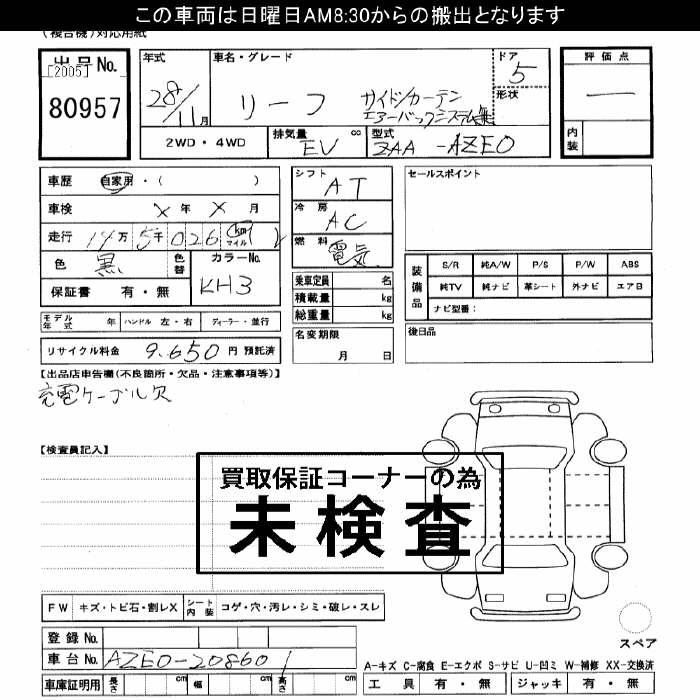 この車両は日曜日AM8:30からの搬出となります
(複合機)対応用紙
出品No.
[2005]
80957
年式
28/11月
車名・グレード
リーフ サイド/カーテン
エアーバックシステム無
ドア
5
形状
評価点
一
2WD・4WD
排気量 cc
EV
型式
ZAA-AZE0
内装
車歴 自家用・( )
車検 X年 X月
走行 14万5千026 km マイル
色 黒
色替
カラーNo.
KH3
保証書 有・無
シフト
AT
冷房
AC
燃料
電気
セールスポイント
乗車定員 名
積載量 kg
総重量 kg
装備品
S/R 純A/W P/S P/W ABS
純TV 純ナビ 革シート 外ナビ エアB
ナビ型番:
モデル年式 年 ハンドル 左・右 ディーラー・並行
名変期限
月 日
後日品
リサイクル料金 9,650 円 預託済
【出品店申告欄(不良箇所・欠品・注意事項等)】
充電ケーブル欠
【検査員記入】
買取保証コーナーの為
未検査
FW キズ・トビ石・割レX シート内装 コゲ・穴・汚レ・シミ・破レ・スレ
登録No.
車台No. AZE0-208601
車庫証明用 長さ cm 幅 cm 高さ cm
スペア
A-キズ C-腐食 E-エクボ S-サビ U-凹ミ W-補修 XX-交換済
工具 有・無 ジャッキ 有・無